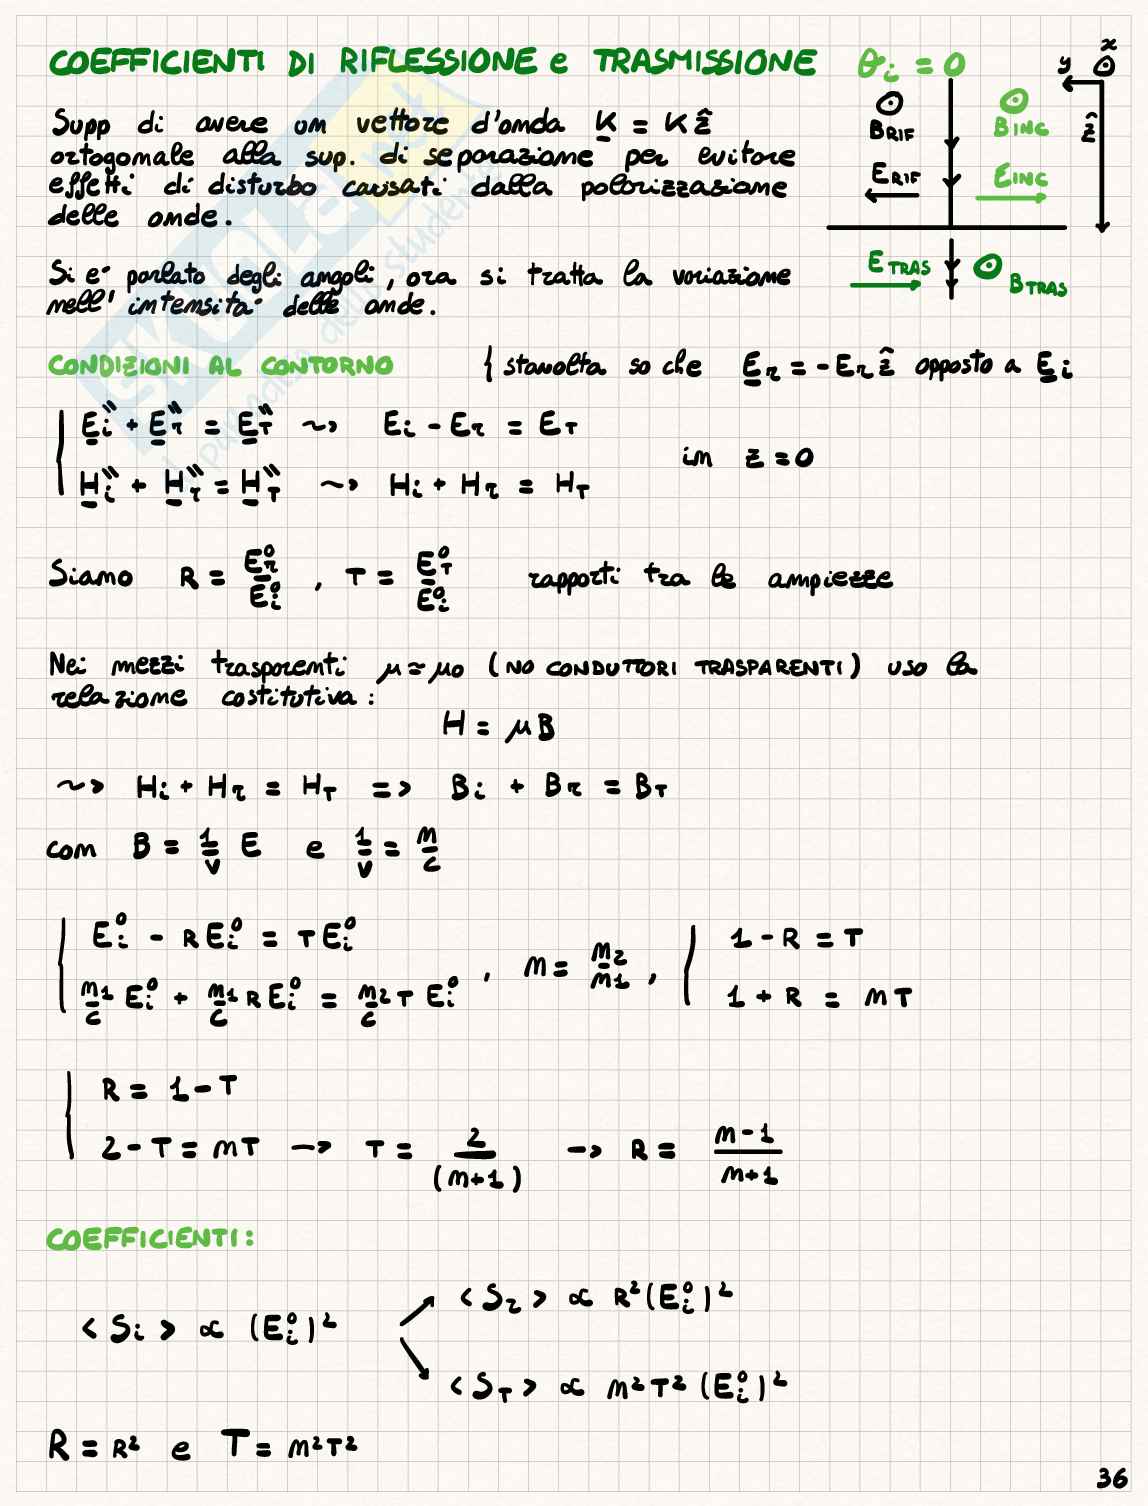 COEFFICIENTI DI RIFLESSIONE e TRASMISSIONE
θi = 0
x
y
ẑ
BRIF
BINC
ERIF
EINC
ETRAS
BTRAS
Supp di avere un vettore d'onda K = K ẑ
ortogonale alla sup. di separazione per evitare
effetti di disturbo causati dalla polarizzazione
delle onde.
Si e' parlato degli angoli, ora si tratta la variazione
nell' intensita' delle onde.
CONDIZIONI AL CONTORNO { stavolta so che Er = -Er ẑ opposto a Ei
Ei" + Er" = ET" ~> Ei - Er = ET
in z = 0
Hi" + Hr" = HT" ~> Hi + Hr = HT
Siano R = Er⁰/Ei⁰ , T = ET⁰/Ei⁰ rapporti tra le ampiezze
Nei mezzi trasparenti μ ≈ μ0 (NO CONDUTTORI TRASPARENTI) uso la
relazione costitutiva:
H = μB
~> Hi + Hr = HT => Bi + Br = BT
con B = 1/v E e 1/v = n/c
Ei⁰ - REi⁰ = TEi⁰
n1/c Ei⁰ + n1/c REi⁰ = n2/c T Ei⁰ , n = n2/n1 ,
1 - R = T
1 + R = nT
R = 1 - T
2 - T = nT -> T = 2/(n+1) -> R = n-1/n+1
COEFFICIENTI:
<Si> ∝ (Ei⁰)²
<Sr> ∝ R²(Ei⁰)²
<ST> ∝ n²T²(Ei⁰)²
R = R² e T = n²T²
36
SKUOLA.net
il paradiso dello studente